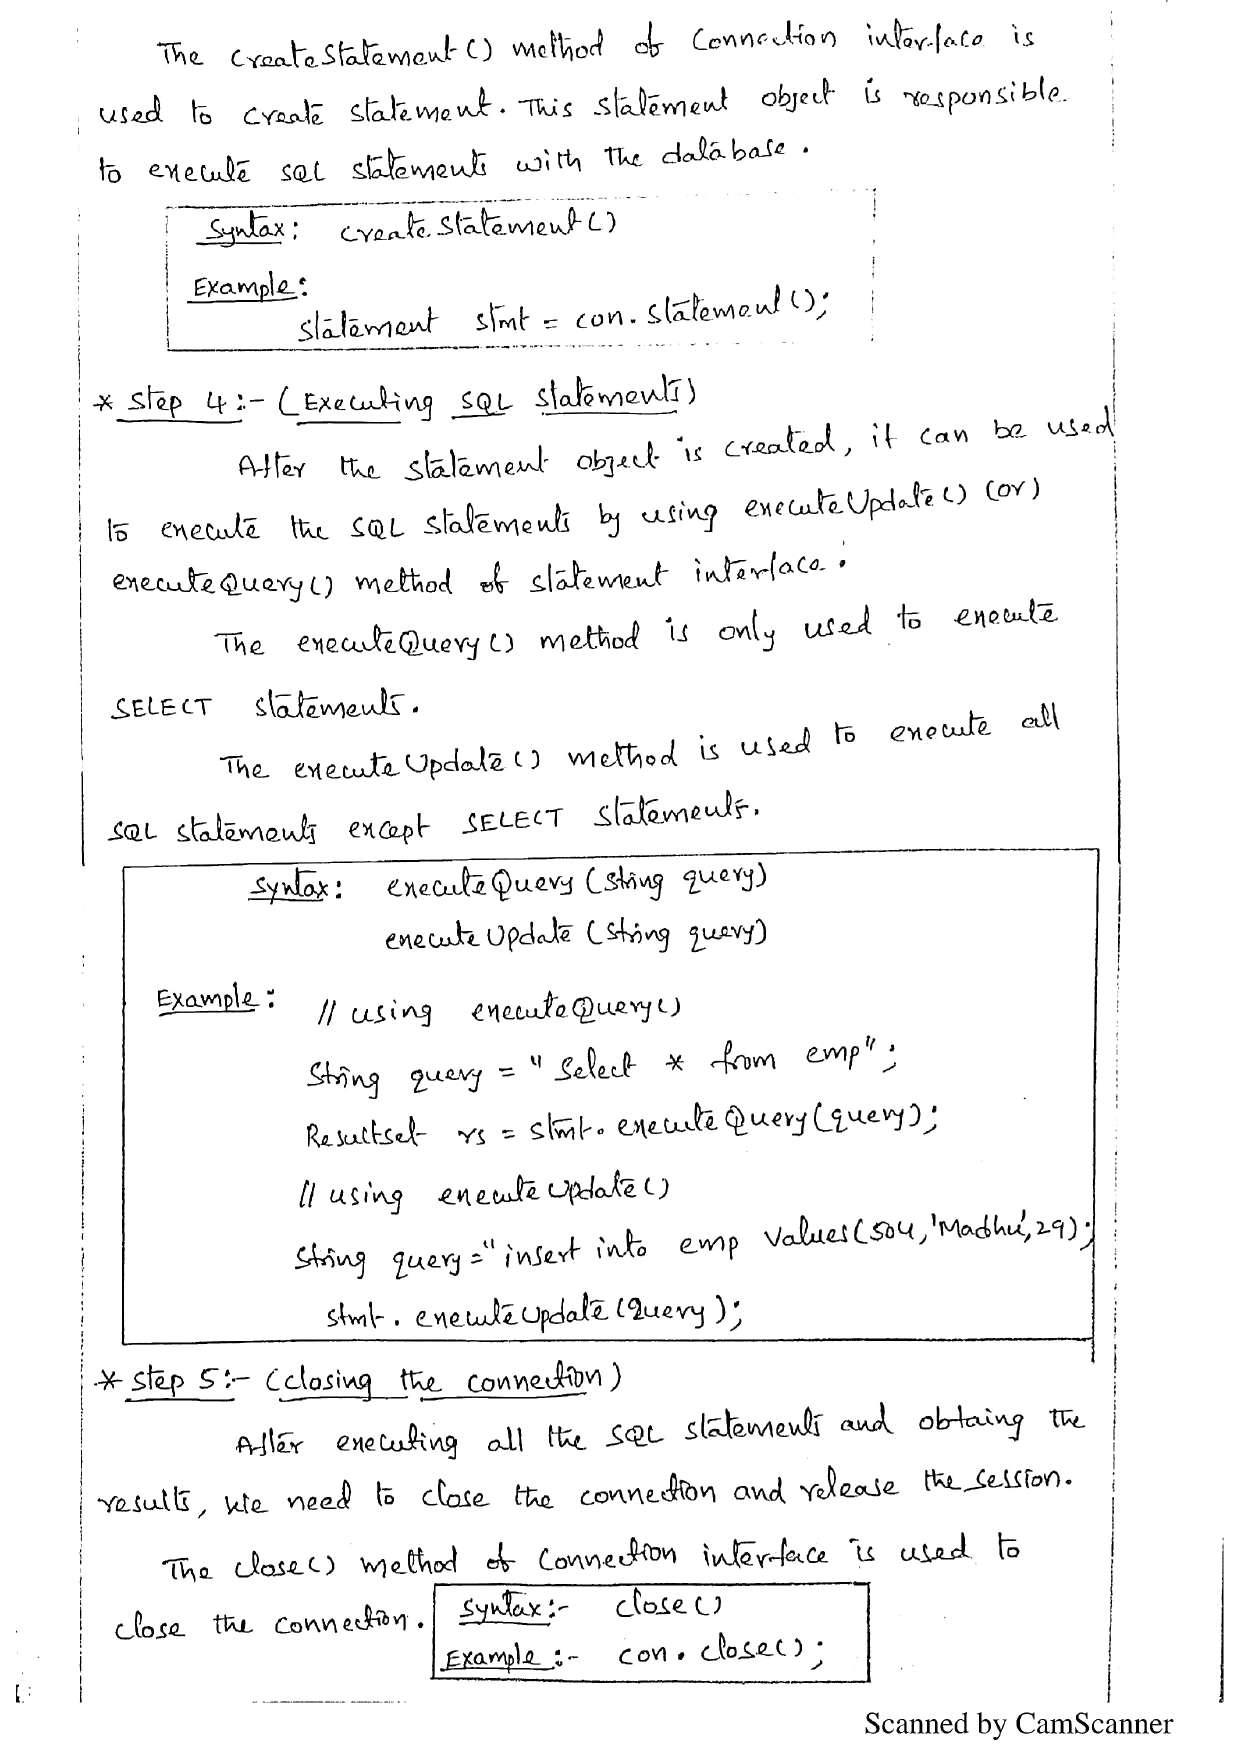 The createStatement() method of Connection interface is
used to create statement. This statement object is responsible.
to execute SQL statements with the database.
Syntax: createStatement()
Example:
Statement stmt = con.Statement();
* Step 4:- (Executing SQL Statements)
After the statement object is created, it can be used
to execute the SQL statements by using executeUpdate() (or)
executeQuery() method of statement interface.
The executeQuery() method is only used to execute
SELECT statements.
The executeUpdate() method is used to execute all
SQL statements except SELECT statements.
Syntax: executeQuery (String query)
executeUpdate (String query)
Example: // using executeQuery()
String query = "Select * from emp";
Resultset rs = stmt.executeQuery(query);
// using executeUpdate()
String query="insert into emp values(504,'Madhu',29);
stmt.executeUpdate(query);
* Step 5:- (closing the connection)
After executing all the SQL statements and obtaing the
results, we need to close the connection and release the session.
The close() method of Connection interface is used to
close the connection. Syntax:- close()
Example:- con.close();
Scanned by CamScanner